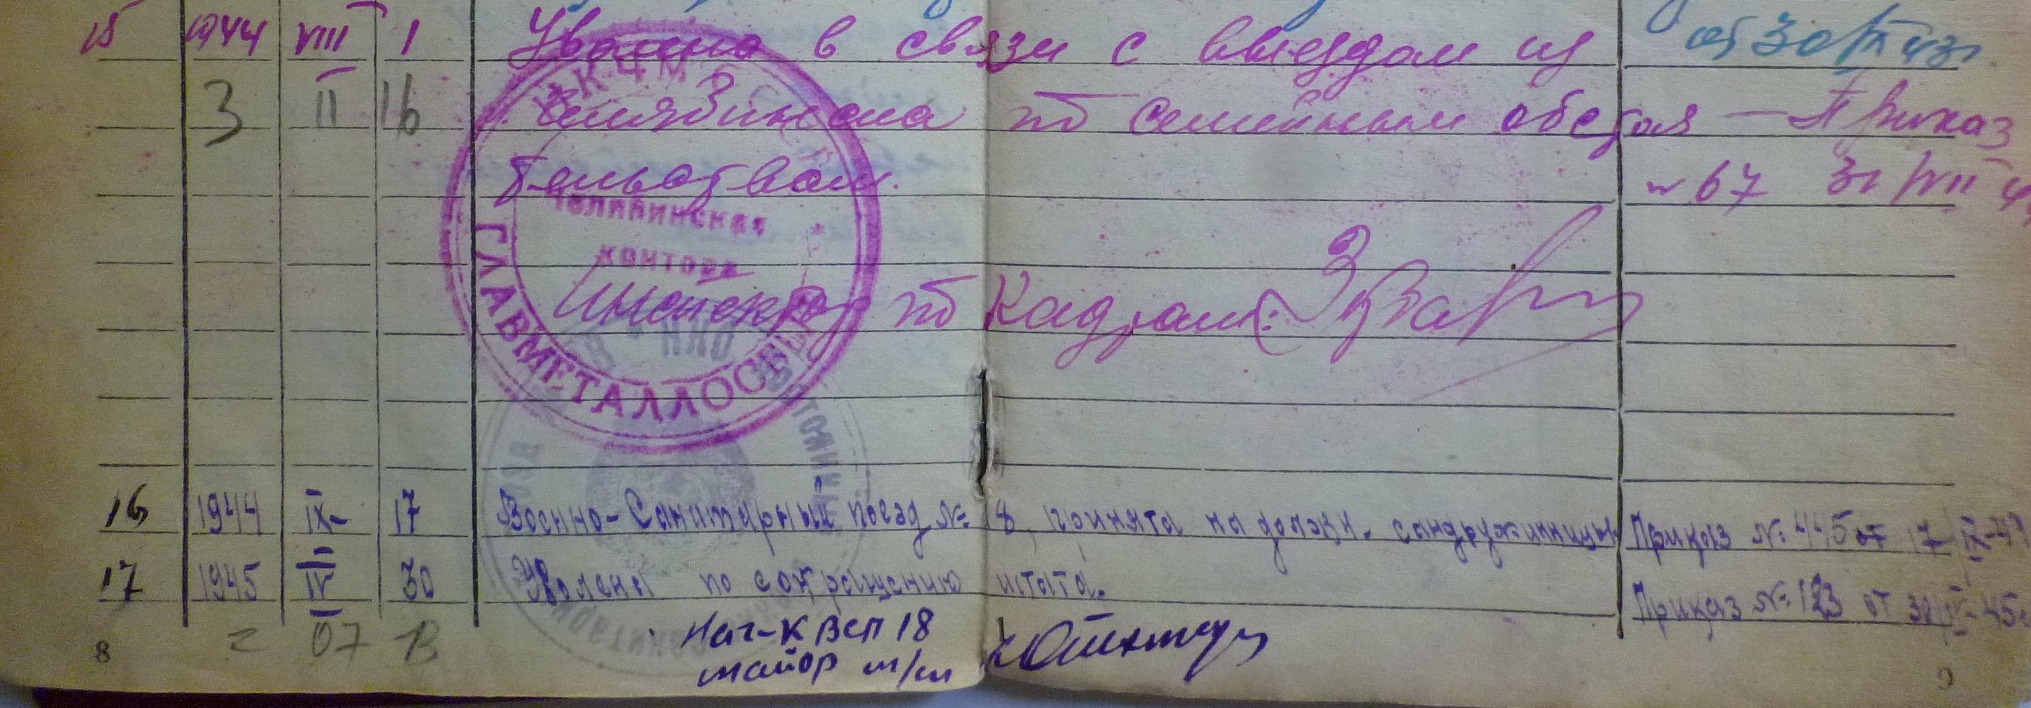 15 1944 VIII 1 Уволена в связи с выездом из
3 II 16 Челябинска по семейным обстоя — Приказ
тельствам. № 67 31/VII 44
НКЧМ
Челябинская
контора
ГЛАВМЕТАЛЛОСБЫТ
Инспектор по Кадрам:
16 1944 IX 17 Военно-Санитарный поезд № 18 принята на должн. сандружинницы Приказ № 445 от 17-IX-44
17 1945 IV 30 Уволена по сокращению штата. Приказ № 123 от 30 IV-45г.
07 В
Нач-к ВСП 18
майор м/сл
8
9